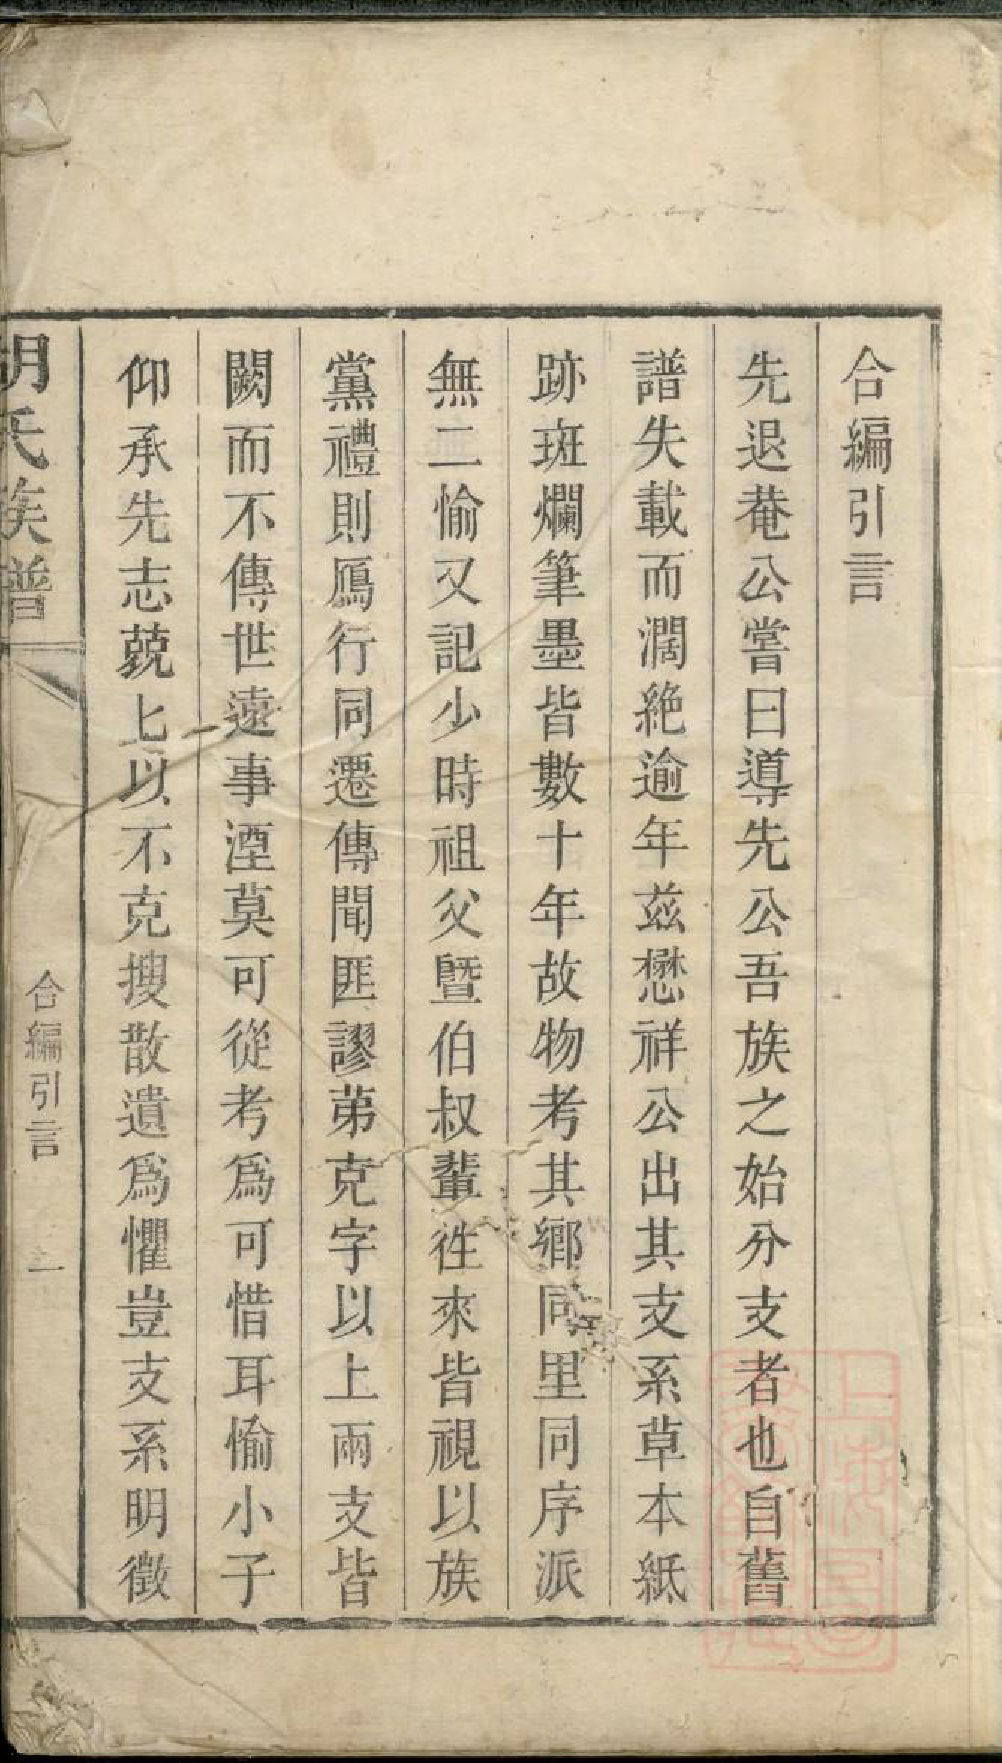 合編引言
先退菴公嘗曰導先公吾族之始分支者也自舊
譜失載而濶絶逾年茲懋祥公出其支系草本紙
跡斑斕筆墨皆數十年故物考其鄉同里同序派
無二愉又記少時祖父暨伯叔輩徃來皆視以族
黨禮則鴈行同遷傳聞匪謬苐克字以上兩支皆
闕而不傳世遠事湮莫可從考爲可惜耳愉小子
仰承先志藐上以不克搜散遺爲懼豈支系明徵
胡氏族譜
合編引言
一